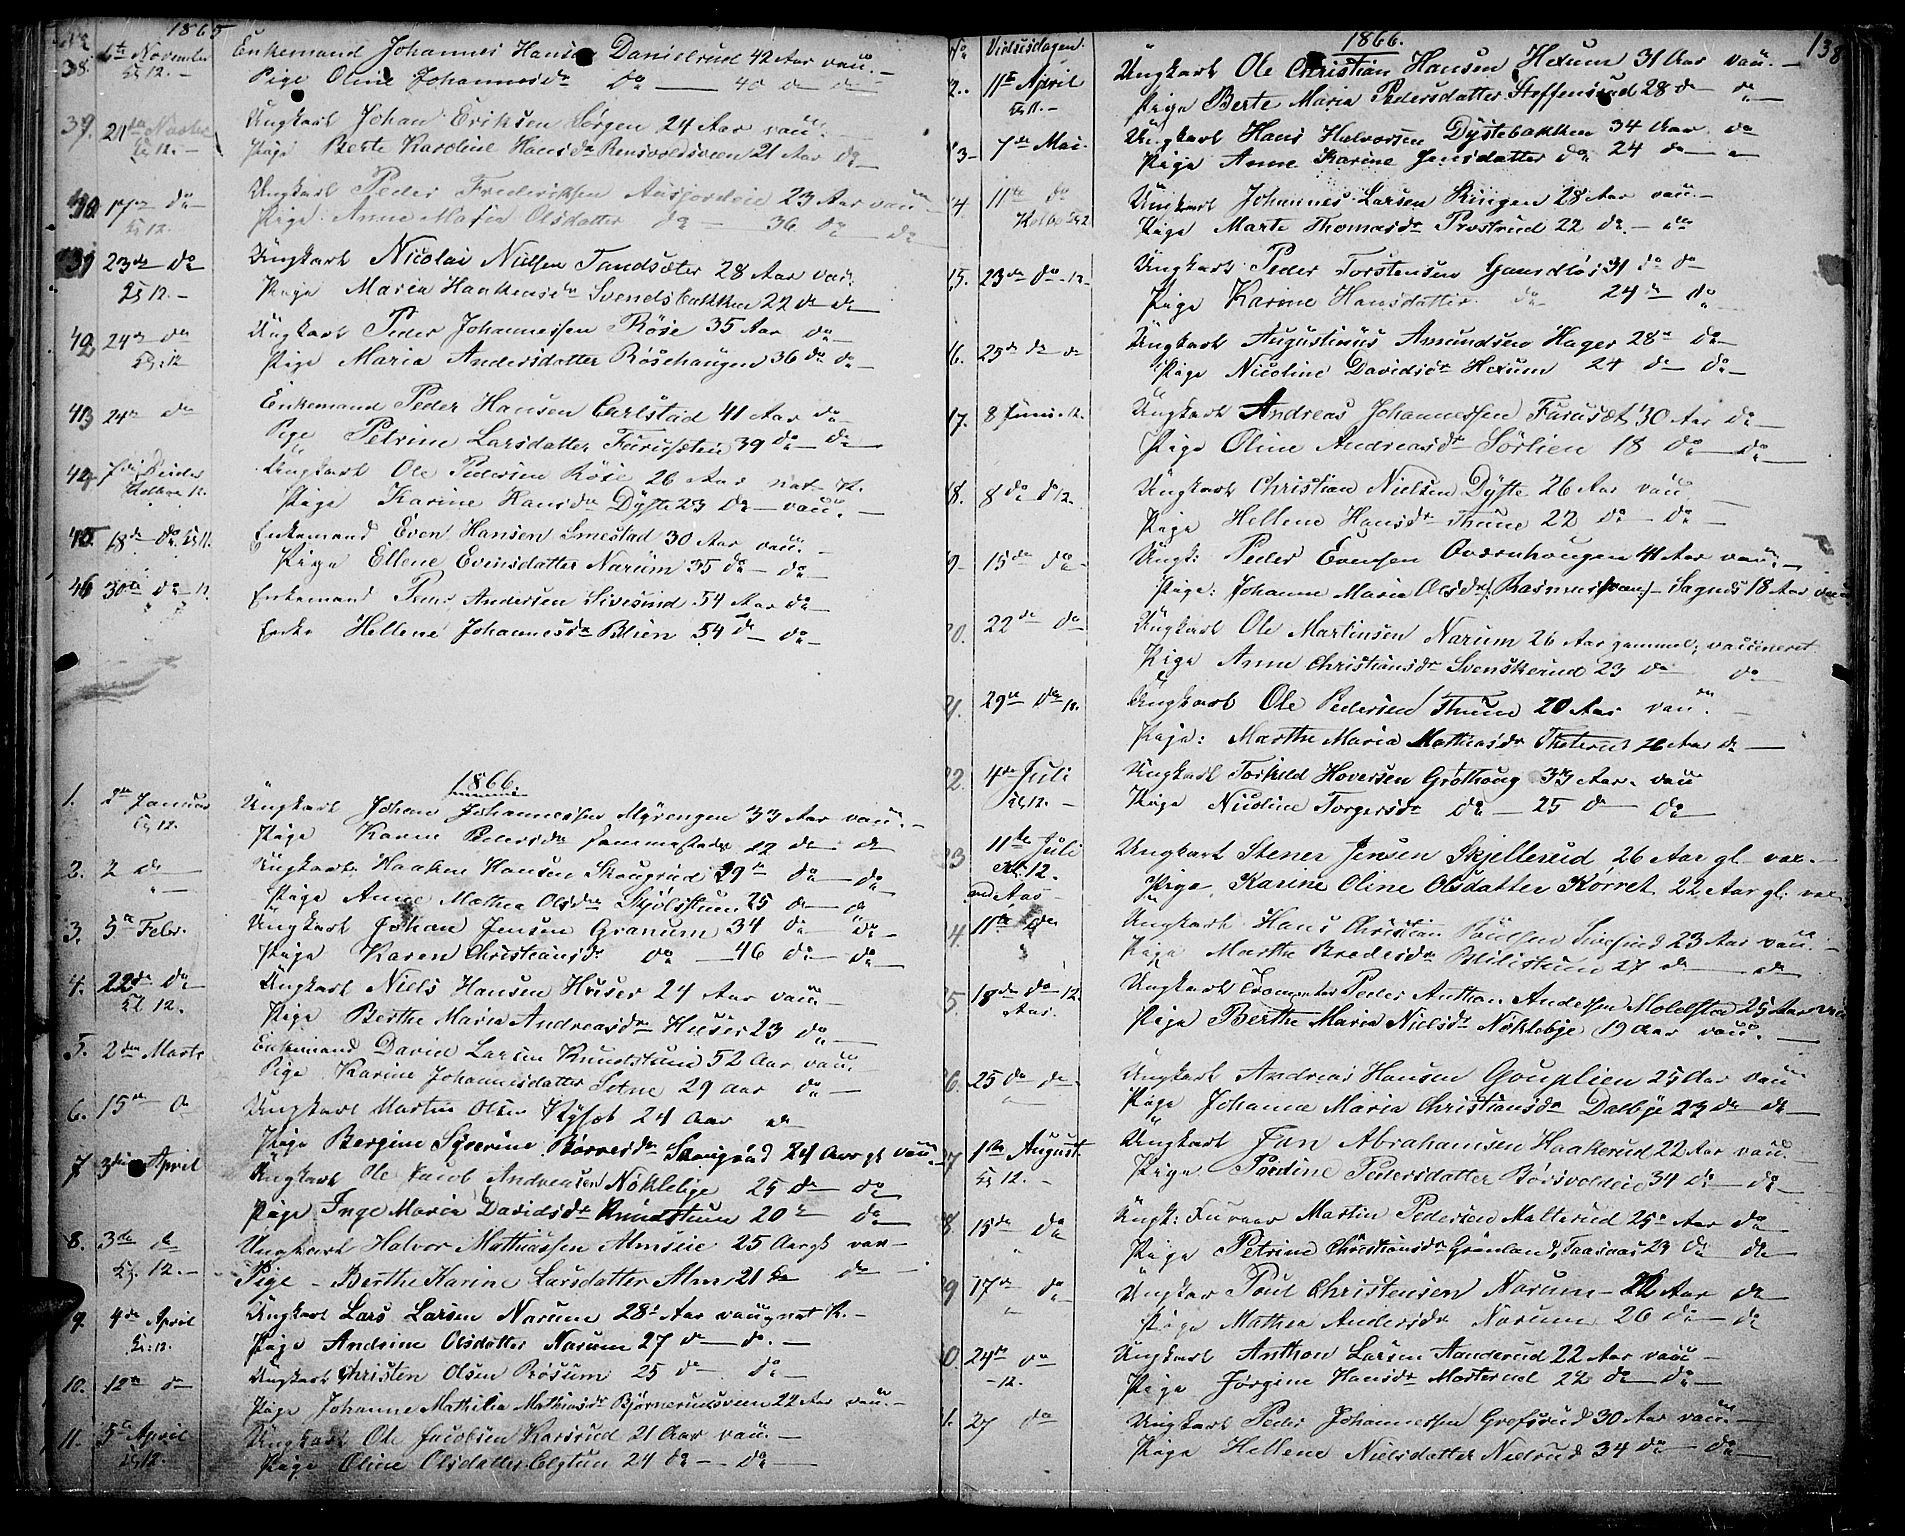 1865
No
38. 6te November Enkemand Johannes Hansen Danielrud 42 Aar vacc. —
Kl 12. — Pige Oline Johannesdr do — 40 do do
39. 21de Novbr Ungkarl Johan Eriksen Sørgen 24 Aar vacc. —
Kl 12. — Pige Berte Karoline Hansdr Rensvoldsveen 21 Aar do
40 17de do Ungkarl Peder Frederiksen Aasjordeie 23 Aar vacc —
Kl 12. Pige Anne Maria Olsdatter do — 36 do — do
23de do Ungkarl Nicolai Nielsen Tandsæter 28 Aar vac:
Kl 12. — Pige Maria Haakensdr Svendsbakken 22 do do
42 24de do Ungkarl Peder Johannessen Røise 35 Aar do
Kl: 12 Pige Maria Andersdatter Røsehaugen 36 do do —
43 24de do Enkemand Peder Hansen Carlstad 41 Aar do
Pige Petrine Larsdatter Furusæteie 39 do — do
44 Ungkarl Ole Pedersen Røise 26 Aar nat. K.
Kolbu 12. Pige Karine Hansdr Dyste 23 do — vacc. —
45. 18de do Kl 11. Enkemand Even Hansen Smestad 30 Aar vacc. —
Pige Ellene Evensdatter Narum 35 do — do —
46 30te do 12. Enkemand Peder Andersen Sivesind 54 Aar do —
Enke Hellene Johannesdr Blien 54 do do —
1866.
1. Januar Ungkarl Johan Johannessen Myrengen 33 Aar vacc. —
Kl 12. Pige Karen Pedersdr sammestads 22 do do
2. 2 do Ungkarl Haaken Hansen Skougrud 29 do do
Pige Anne Mathea Olsdr Skjølstuen 25 do do
3. 5te Febr. Ungkarl Johan Jensen Granum 34 do do —
Pige Karen Christiansdr do — 46 do — do —
4. 22de do Ungkarl Niels Hansen Huser 24 Aar vacc —
Kl 12. Pige Berthe Maria Andreasdr Huser 23 do —
5. 2den Marts Enkemand David Larsen Knudstuen 52 Aar vacc.
Pige Karine Johannesdatter Sotne 29 aar do —
6. 15de do Ungkarl Martin Olsen Kysæt 24 Aar do
Pige Bergine Syverine Børresdr Skougrud 24 Aar gl vacc.
7 3die April Ungkarl Ole Jacob Andreasen Nøklebye 25 do do
Pige Inge Maria Davidsdr Knudstuen 20 do do
8. 3de do Ungkarl Halvor Mathiassen Almseie 25 Aar gl vac —
Kl. 12. — Pige — Berthe Karine Larsdatter Alm 21 do do —
9. 4de April Ungkarl Lars Larsen Narum 28 Aar vacc nat K. —
Kl: 12. Pige Andrine Olsdatter Narum 27 do do. —
10. 12te do Ungkarl Christen Olsen Røsum 25 do do —
Pige Johanne Mathilie Mathiasdr Bjørnerudsveen 22 Aar vacc. —
11. 5te April Ungkarl Ole Jacobsen Karsrud 21 Aar vacc. —
Kl 12. — Pige Oline Olsdatter Elgtun 24 do — do —
138
No Vielsesdagen. 1866.
2.. 11te April Ungkarl Ole Christian Hansen Hexum 31 Aar vacc. —
Kl 11. — Pige Berte Maria Pedersdatter Steffensrud 28 do do
3 — 7de Mai. Ungkarl Hans Halvorsen Dystebakken 34 Aar do
Pige Anne Karine Jensdatter do 24 do —
4 11te do Ungkarl Johannes Larsen Ringen 28 Aar vacc —
Kolbu Kl 12. Pige Marte Thomasdr Prestrud 22 do. — do
15. 23de do — 12 — Ungkarl Peder Torstensen 31 do do
Pige Karine Hansdatter do 24 do do
6. 25de do do Ungkarl Augustinus Amundsen Hager 28 do —
Pige Nicoline Davidsdr Hexum 24 do do —
17. 8 Juni 12. Ungkarl Andreas Johannessen Furusæt 30 Aar do —
Pige Oline Andreasdr Sørlien 18 do do
18. 8 do do 12. Ungkarl Christian Nielsen Dyste 26 Aar vacc
Pige Hellene Hansdr Thune 22 do — do —
9 — 15de do — Ungk: Peder Evensen 41 Aar vacc. —
Pige: Johanne Maria Olsdr Sagnes 18 Aar vacc
20. 22de do Ungkarl Ole Martinsen Narum 26 Aar gammel, vaccineret
Pige Anne Christiansdr Svenskerud 23 do do
21. 29de do 12. Ungkarl Ole Pedersen Thune 20 Aar vacc. —
Pige: Marthe Maria Mathiasdr 26 Aar do —
22. 4de Juli Ungkarl Torkild Hoversen Grøthoug 33 Aar. vacc
Kl 12. — Pige Nicoline Torgersdr do — 25 do do
23 11te Juli Ungkarl Stener Jensen Skjellerud 26 Aar gl vac. —
Kl. 12. Pige Karine Oline Olsdatter Kørret 22 Aar gl. vac
ved Aas —
4. 11te do Ungkarl Hans Christian Poulsen Sivesind 23 Aar vacc. —
Pige Marthe Bredesdr Blilistuen 27 do — do
5. 18de do 12. Ungkarl Peder Anthon Andersen 25 Aar vacc
Aas. Pige Berthe Maria Nielsdr Nøklebye 19 Aar vacc. —
6. 25 do do Ungkarl Andreas Hansen Gouplien 25 Aar vacc
Pige Johanne Maria Christiansdr Dalbye 23 do do —
27 1ste August Ungkarl Jan Abrahamsen Haakerud 22 Aar vacc. —
Kl 12. — Pige Pedersdatter Børsvoldeie 34 do — do —
8 15de do Ungk: Furaar Martin Pedersen Malterud 25 Aar do
Pige Petrine Christiansdr Grønland, 23 do do —
9 17de do Ungkar Poul Christensen Narum — 22 Aar do
Pige Mathea Andersdr Narum 26 do — do
0. 24de do Ungkarl Anthon Larsen Aanderud 22 Aar vacc —
— 12. Pige Jørgine Hansdr Mosterud 22 do — do —
1. 27 do Ungkarl Peder Johannessen Grefsrud 30 Aar vacc. —
Pige Hellene Nielsdatter Nielsrud 34 do — do —